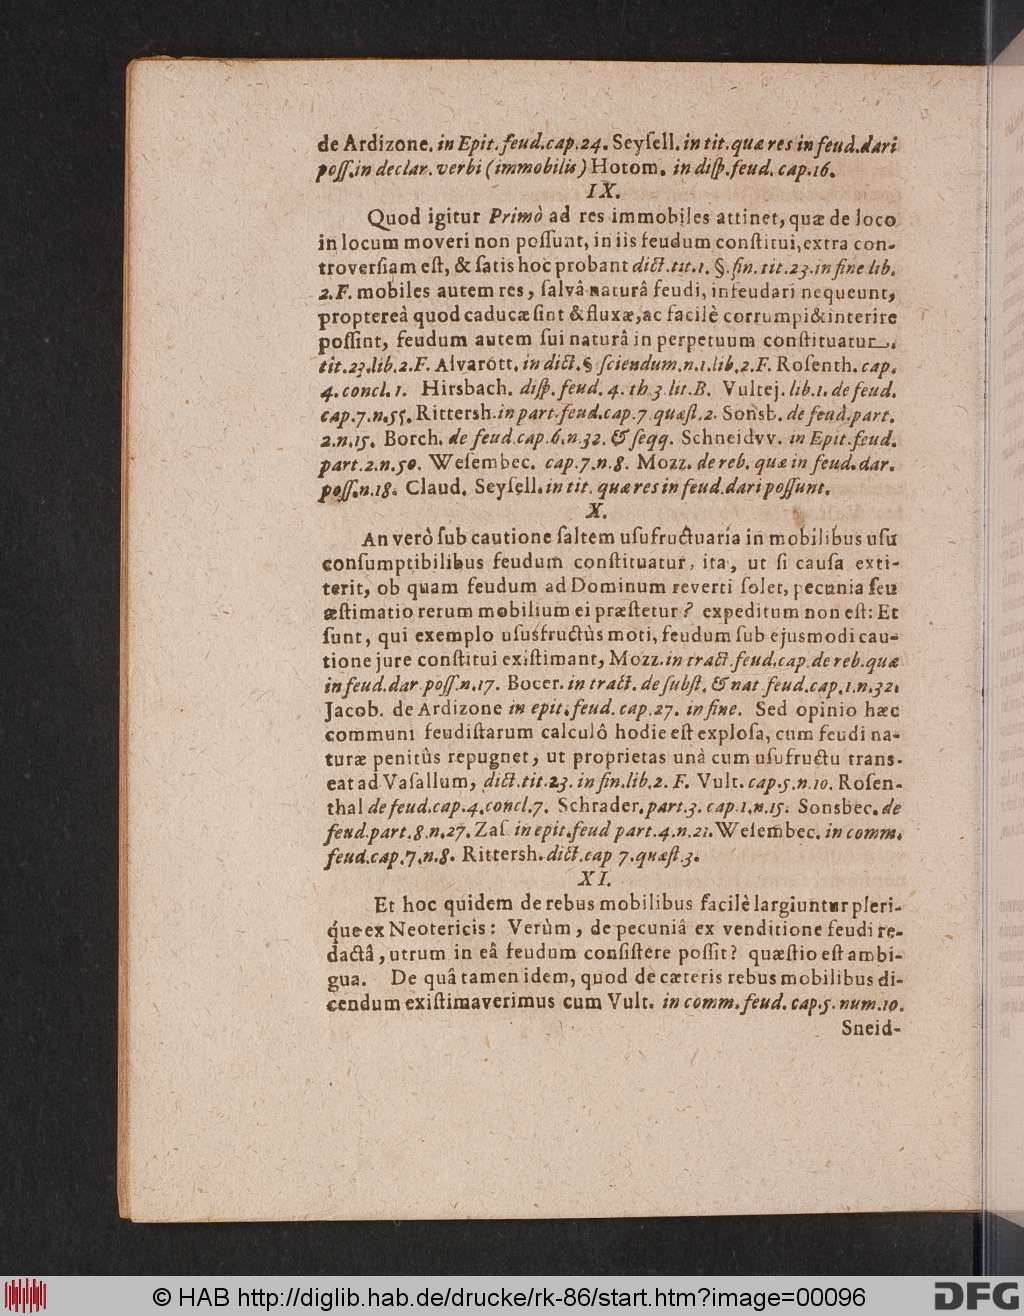 de Ardizone. in Epit. feud. cap. 24. Seyſell. in tit. quæ res in feud. dari
poſſ. in declar. verbi (immobilis) Hotom. in diſp. feud. cap. 16.
IX.
Quod igitur Primò ad res immobiles attinet, quæ de loco
in locum moveri non poſſunt, in iis feudum conſtitui, extra con-
troverſiam eſt, & ſatis hoc probant dict. tit. 1. §. fin. tit. 23. in fine lib.
2. F. mobiles autem res, ſalvâ naturâ feudi, infeudari nequeunt,
proptereà quod caducæ ſint & fluxæ, ac facilè corrumpi & interire
poſſint, feudum autem ſui naturâ in perpetuum conſtituatur.
tit. 23. lib. 2. F. Alvarott. in dict. § ſciendum. n. 1. lib. 2. F. Roſenth. cap.
4. concl. 1. Hirsbach. diſp. feud. 4. th 3 lit. B. Vultej. lib. 1. de feud.
cap. 7. n. 55. Rittersh. in part. feud. cap. 7 quæſt. 2. Sonsb. de feud. part.
2. n. 15. Borch. de feud. cap. 6. n. 32. & ſeqq. Schneidvv. in Epit. feud.
part. 2. n. 50. Weſembec. cap. 7. n. 8. Mozz. de reb. quæ in feud. dar.
poſſ. n. 18. Claud. Seyſell. in tit. quæ res in feud. dari poſſunt.
X.
An verò ſub cautione ſaltem uſufructuaria in mobilibus uſu
conſumptibilibus feudum conſtituatur, ita, ut ſi cauſa exti-
terit, ob quam feudum ad Dominum reverti ſolet, pecunia ſeu
æſtimatio rerum mobilium ei præſtetur? expeditum non eſt: Et
ſunt, qui exemplo uſusfructùs moti, feudum ſub ejusmodi cau-
tione jure conſtitui exiſtimant, Mozz. in tract. feud. cap. de reb. quæ
in feud. dar poſſ. n. 17. Bocer. in tract. de ſubſt. & nat feud. cap. 1. n. 32.
Jacob. de Ardizone in epit. feud. cap. 27. in fine. Sed opinio hæc
communi feudiſtarum calculô hodie eſt exploſa, cum feudi na-
turæ penitùs repugnet, ut proprietas unà cum uſufructu trans-
eat ad Vaſallum, dict. tit. 23. in fin. lib. 2. F. Vult. cap. 5. n. 10. Roſen-
thal de feud. cap. 4. concl. 7. Schrader. part. 3. cap. 1. n. 15. Sonsbec. de
feud. part. 8. n. 27. Zaſ. in epit. feud part. 4. n. 21. Weſembec. in comm.
feud. cap. 7. n. 8. Rittersh. dict. cap 7. quæſt 3.
XI.
Et hoc quidem de rebus mobilibus facilè largiuntur pleri-
que ex Neotericis: Verùm, de pecuniâ ex venditione feudi re-
dactâ, utrum in eâ feudum conſiſtere poſſit? quæſtio eſt ambi-
gua. De quâ tamen idem, quod de cæteris rebus mobilibus di-
cendum exiſtimaverimus cum Vult. in comm. feud. cap. 5. num. 10.
Sneid-
© HAB http://diglib.hab.de/drucke/rk-86/start.htm?image=00096
DFG